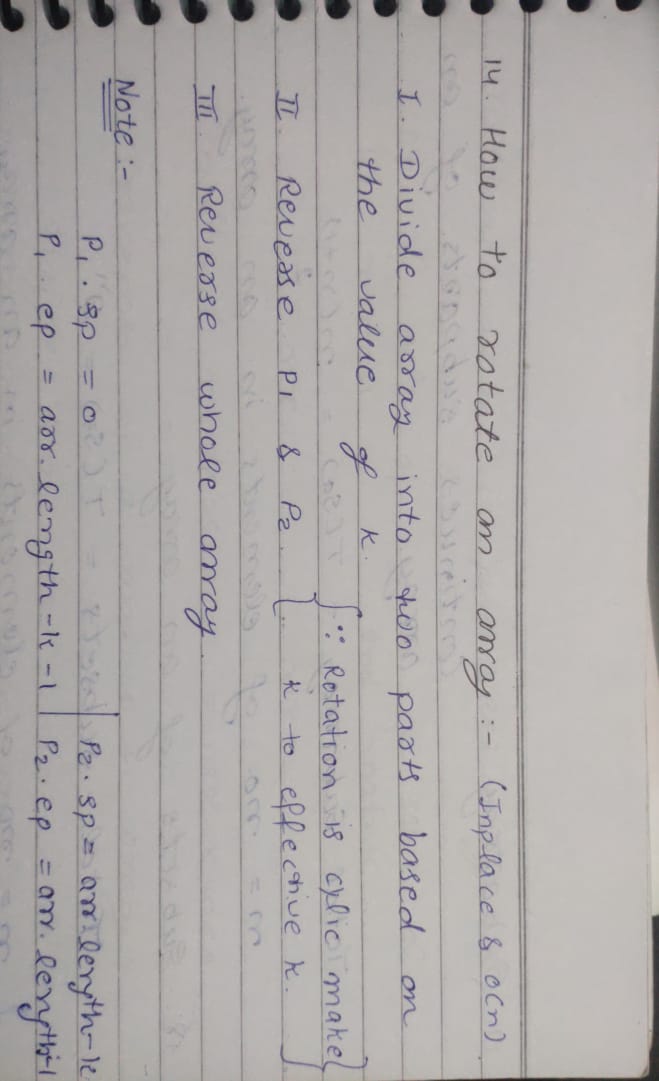 14. How to rotate an array :- (Inplace & O(n))
I. Divide array into two parts based on
the value of k.
{∵ Rotation is cylic make
k to effective k.}
II. Reverse P1 & P2.
III. Reverse whole array.
Note :-
P1 . sp = 0 | P2 . sp = arr. length-k
P1 . ep = arr. length -k -1 | P2 . ep = arr. length-1